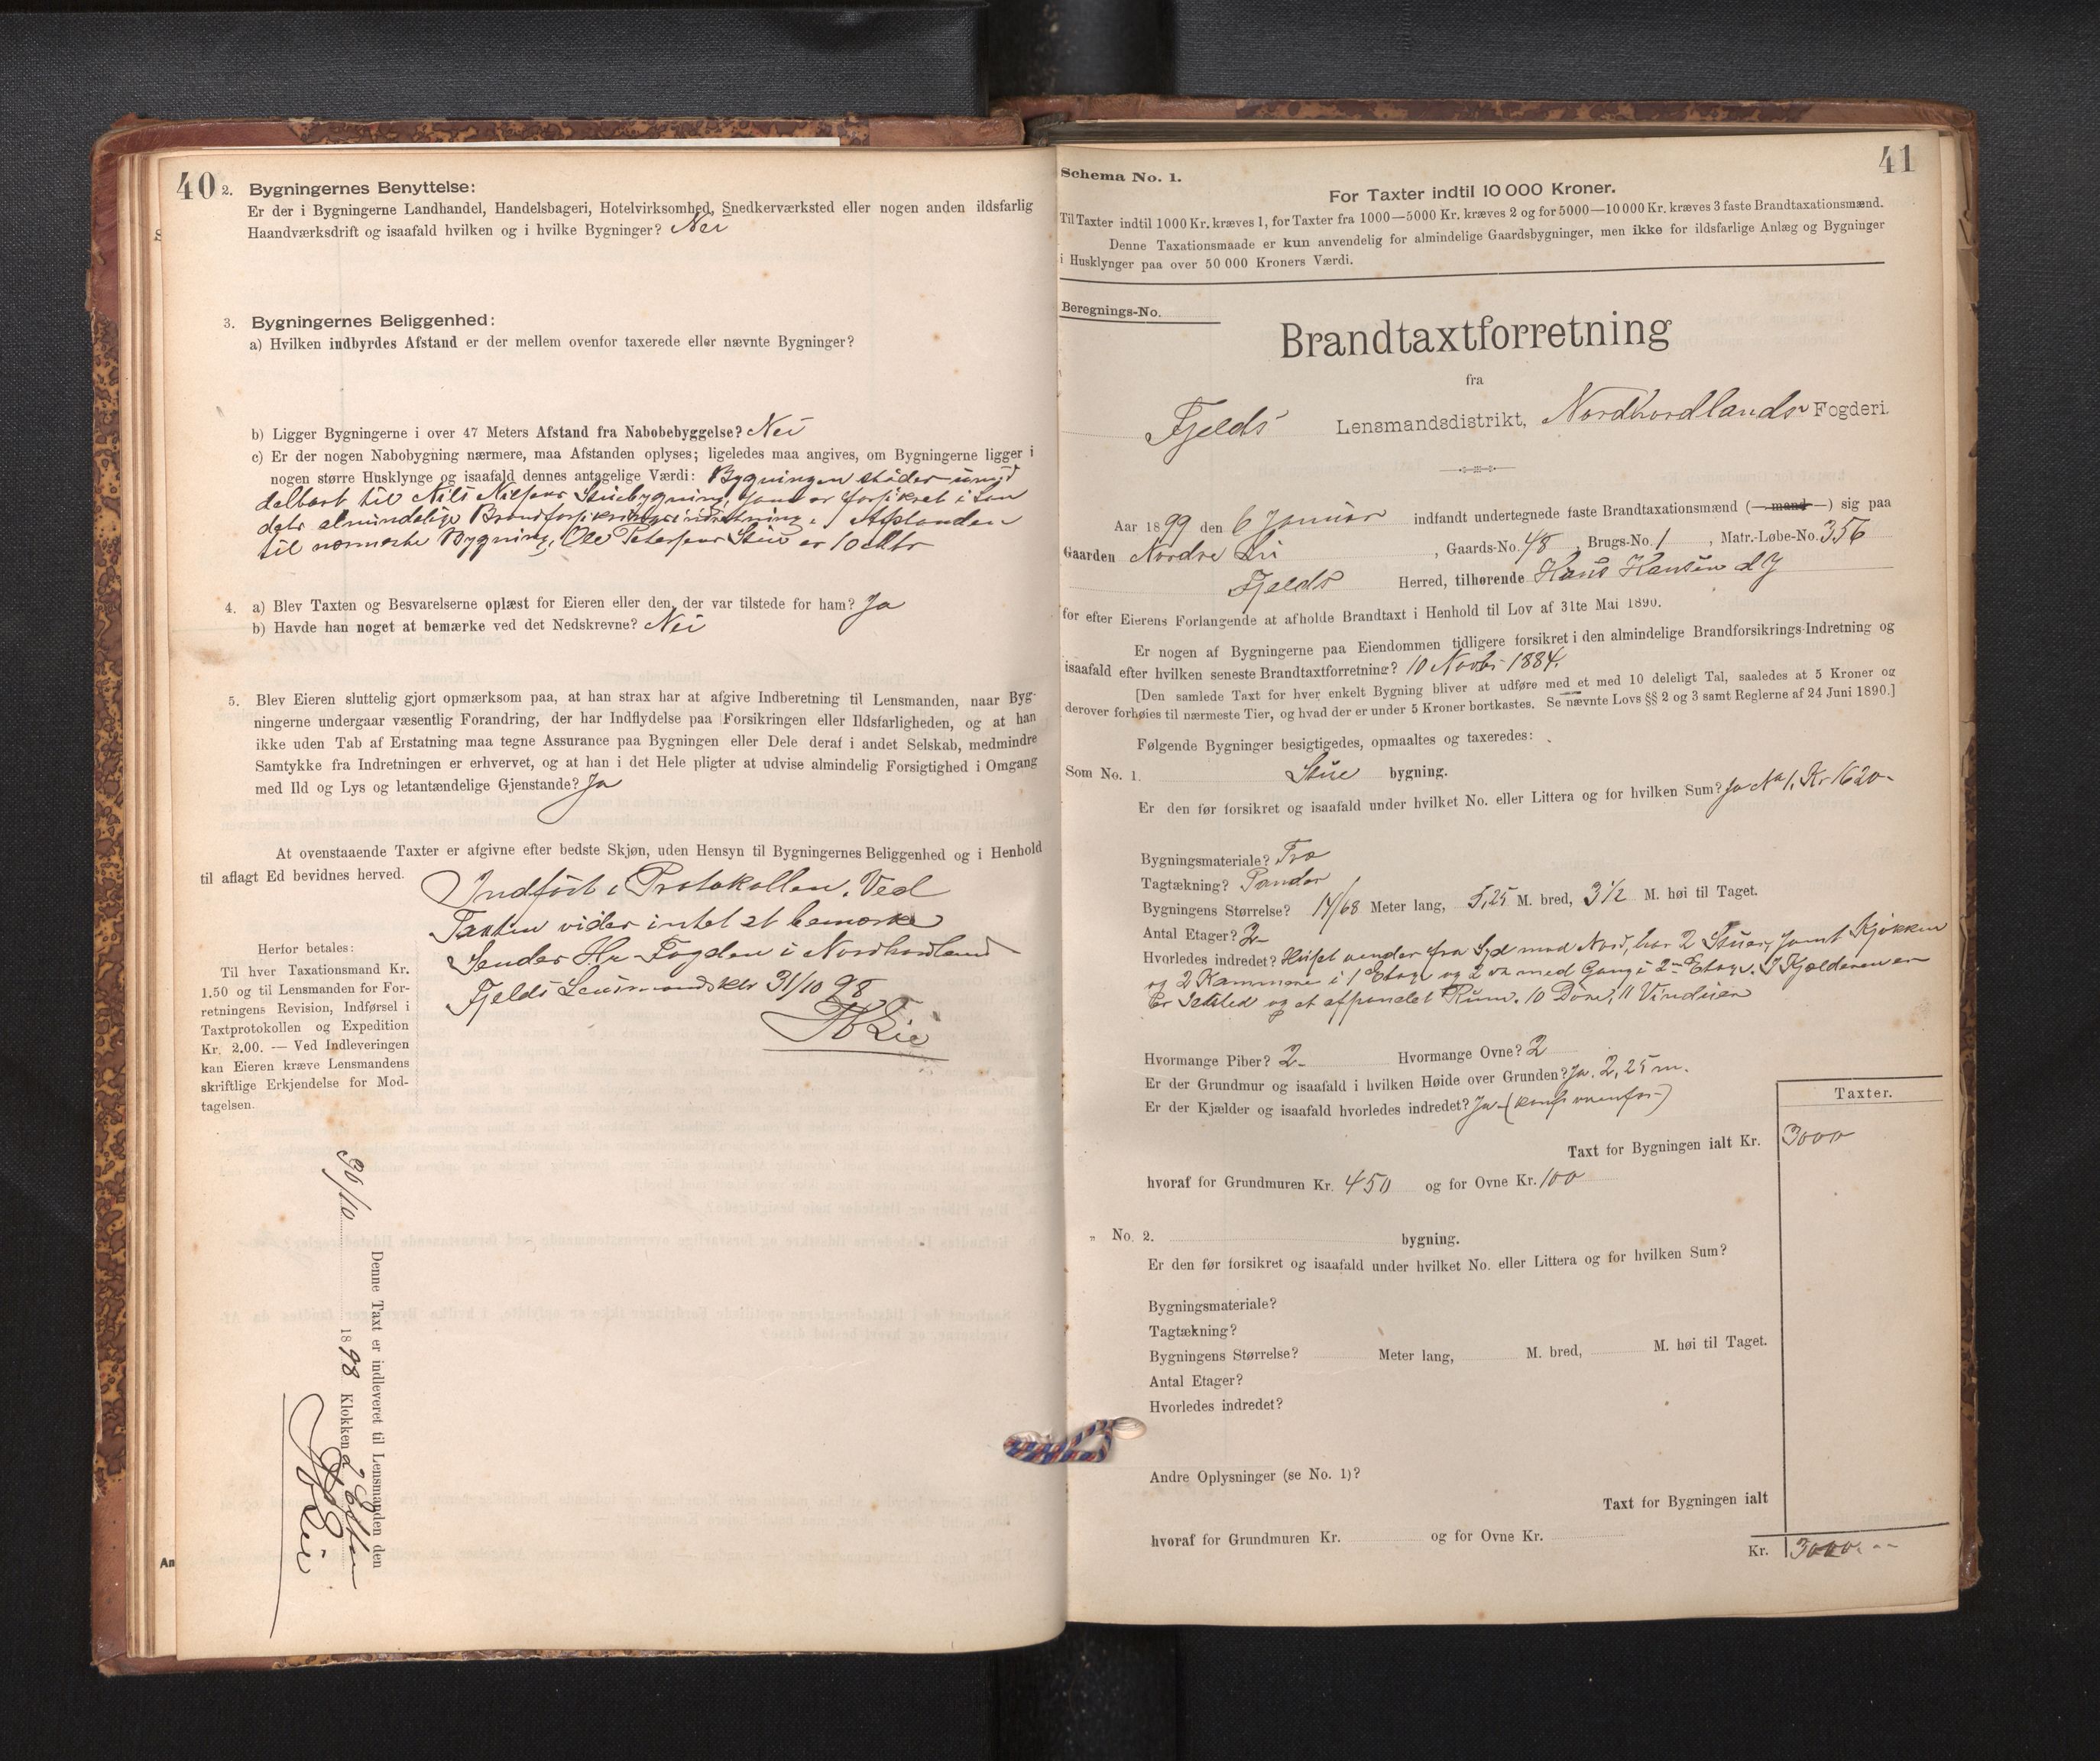 40
2. Bygningernes Benyttelse:
Er der i Bygningerne Landhandel, Handelsbageri, Hotelvirksomhed, Snedkerværksted eller nogen anden ildsfarlig
Haandværksdrift og isaafald hvilken og i hvilke Bygninger? Nei
3. Bygningernes Beliggenhed:
a) Hvilken indbyrdes Afstand er der mellem ovenfor taxerede eller nævnte Bygninger?
b) Ligger Bygningerne i over 47 Meters Afstand fra Nabobebyggelse? Nei
c) Er der nogen Nabobygning nærmere, maa Afstanden oplyses; ligeledes maa angives, om Bygningerne ligger i
nogen større Husklynge og isaafald dennes antagelige Værdi: Bygningen støder umid
delbart til Nils Nilsens Stuebygning, som er forsikret i Lan
dets almindelige Brandforsikringsindretning. Afstanden
til nærmeste Bygning, Ole Petersens Stue er 10 Mtr
4. a) Blev Taxten og Besvarelserne oplæst for Eieren eller den, der var tilstede for ham? Ja
b) Havde han noget at bemærke ved det Nedskrevne? Nei
5. Blev Eieren sluttelig gjort opmærksom paa, at han strax har at afgive Indberetning til Lensmanden, naar Byg-
ningerne undergaar væsentlig Forandring, der har Indflydelse paa Forsikringen eller Ildsfarligheden, og at han
ikke uden Tab af Erstatning maa tegne Assurance paa Bygningen eller Dele deraf i andet Selskab, medmindre
Samtykke fra Indretningen er erhvervet, og at han i det Hele pligter at udvise almindelig Forsigtighed i Omgang
med Ild og Lys og letantændelige Gjenstande? Ja
At ovenstaaende Taxter er afgivne efter bedste Skjøn, uden Hensyn til Bygningernes Beliggenhed og i Henhold
til aflagt Ed bevidnes herved.
Indført i Protokollen. Ved
Taxten vides intet at bemærke
Sendes Hr Fogden i Nordhordland
Fjelds Lensmandsktr 31/10 98
Lie
Herfor betales:
Til hver Taxationsmand Kr.
1.50 og til Lensmanden for For-
retningens Revision, Indførsel i
Taxtprotokollen og Expedition
Kr. 2.00. — Ved Indleveringen
kan Eieren kræve Lensmandens
skriftlige Erkjendelse for Mod-
tagelsen.
Denne Taxt er indleveret til Lensmanden den
30/10 1898 Klokken 2 Efterm
Lie
41
Schema No. 1.
For Taxter indtil 10 000 Kroner.
Til Taxter indtil 1000 Kr. kræves 1, for Taxter fra 1000—5000 Kr. kræves 2 og for 5000—10 000 Kr. kræves 3 faste Brandtaxationsmænd.
Denne Taxationsmaade er kun anvendelig for almindelige Gaardsbygninger, men ikke for ildsfarlige Anlæg og Bygninger
i Husklynger paa over 50 000 Kroners Værdi.
Beregnings-No.
Brandtaxtforretning
fra
Fjelds Lensmandsdistrikt, Nordhordlands Fogderi.
Aar 1899 den 6 Januar indfandt undertegnede faste Brandtaxationsmænd (—mand—) sig paa
Gaarden Nordre Li, Gaards-No. 48, Brugs-No. 1, Matr.-Løbe-No. 356
Fjelds Herred, tilhørende Hans Hansen d y
for efter Eierens Forlangende at afholde Brandtaxt i Henhold til Lov af 31te Mai 1890.
Er nogen af Bygningerne paa Eiendommen tidligere forsikret i den almindelige Brandforsikrings-Indretning og
isaafald efter hvilken seneste Brandtaxtforretning? 10 Novbr 1884.
[Den samlede Taxt for hver enkelt Bygning bliver at udføre med et med 10 deleligt Tal, saaledes at 5 Kroner og
derover forhøies til nærmeste Tier, og hvad der er under 5 Kroner bortkastes. Se nævnte Lovs §§ 2 og 3 samt Reglerne af 24 Juni 1890.]
Følgende Bygninger besigtigedes, opmaaltes og taxeredes:
Som No. 1. Stue bygning.
Er den før forsikret og isaafald under hvilket No. eller Littera og for hvilken Sum? Ja No 1. Kr 1620-
Bygningsmateriale? Træ
Tagtækning? Pander
Bygningens Størrelse? 14/68 Meter lang, 5,25 M. bred, 3 1/2 M. høi til Taget.
Antal Etager? 2-
Hvorledes indredet? Huset vender fra Syd mod Nord, har 2 Stuer, samt Kjøkken
og 2 Kammere i 1 Etage og 2 med Gang i 2n Etage. I Kjælderen er
Ildsted og et afpanelet Rum. 10 Døre, 11 Vinduer
Hvormange Piber? 2- Hvormange Ovne? 2
Er der Grundmur og isaafald i hvilken Høide over Grunden? Ja. 2,25 m.
Er der Kjælder og isaafald hvorledes indredet? Ja (konf ovenfor)
Taxter.
Taxt for Bygningen ialt Kr. 3000
hvoraf for Grundmuren Kr. 450 og for Ovne Kr. 100
„ No. 2. bygning.
Er den før forsikret og isaafald under hvilket No. eller Littera og for hvilken Sum?
Bygningsmateriale?
Tagtækning?
Bygningens Størrelse? Meter lang, M. bred, M. høi til Taget.
Antal Etager?
Hvorledes indredet?
Andre Oplysninger (se No. 1)?
Taxt for Bygningen ialt
hvoraf for Grundmuren Kr. og for Ovne Kr.
Kr. 3000. --